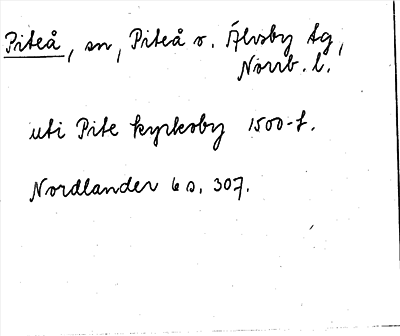 Piteå, sn, Piteå o. Älvsby tg,
Norrb. l.
uti Pite kyrkoby 1500-t.
Nordlander 6 s. 307.